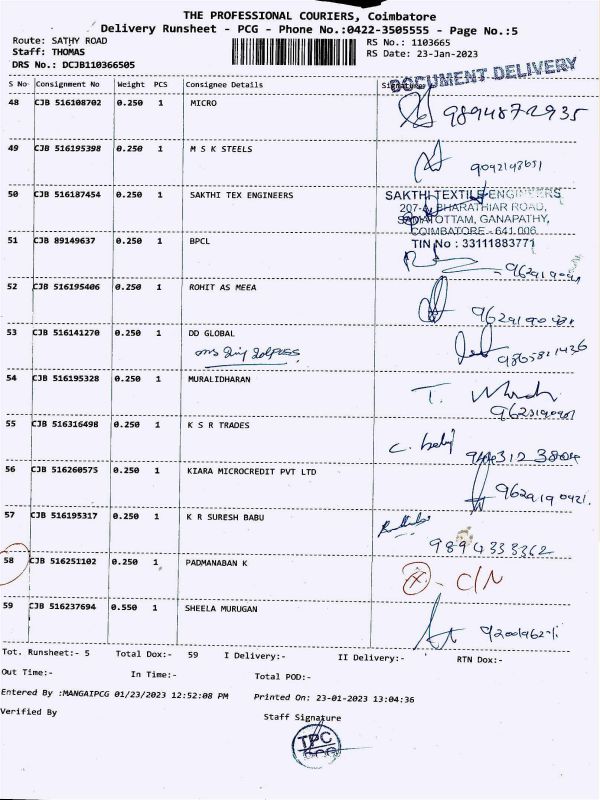 THE PROFESSIONAL COURIERS, Coimbatore
Delivery Runsheet - PCG - Phone No.:0422-3505555 - Page No.:5
Route: SATHY ROAD RS No.: 1103665
Staff: THOMAS RS Date: 23-Jan-2023
DRS No.: DCJB110366505
DOCUMENT DELIVERY
S No Consignment No Weight PCS Consignee Details Signature
48 CJB 516108702 0.250 1 MICRO 9894872935
49 CJB 516195398 0.250 1 M S K STEELS
50 CJB 516187454 0.250 1 SAKTHI TEX ENGINEERS
SAKTHI TEXTILE ENGINEERS
207-A, BHARATHIAR ROAD,
GANAPATHY,
COIMBATORE - 641 006.
TIN No : 33111883771
51 CJB 89149637 0.250 1 BPCL
52 CJB 516195406 0.250 1 ROHIT AS MEEA
53 CJB 516141270 0.250 1 DD GLOBAL
54 CJB 516195328 0.250 1 MURALIDHARAN
55 CJB 516316498 0.250 1 K S R TRADES
56 CJB 516260575 0.250 1 KIARA MICROCREDIT PVT LTD
57 CJB 516195317 0.250 1 K R SURESH BABU
9894333362
58 CJB 516251102 0.250 1 PADMANABAN K C/N
59 CJB 516237694 0.550 1 SHEELA MURUGAN
Tot. Runsheet:- 5 Total Dox:- 59 I Delivery:- II Delivery:- RTN Dox:-
Out Time:- In Time:- Total POD:-
Entered By :MANGAIPCG 01/23/2023 12:52:08 PM Printed On: 23-01-2023 13:04:36
Verified By Staff Signature
TPC